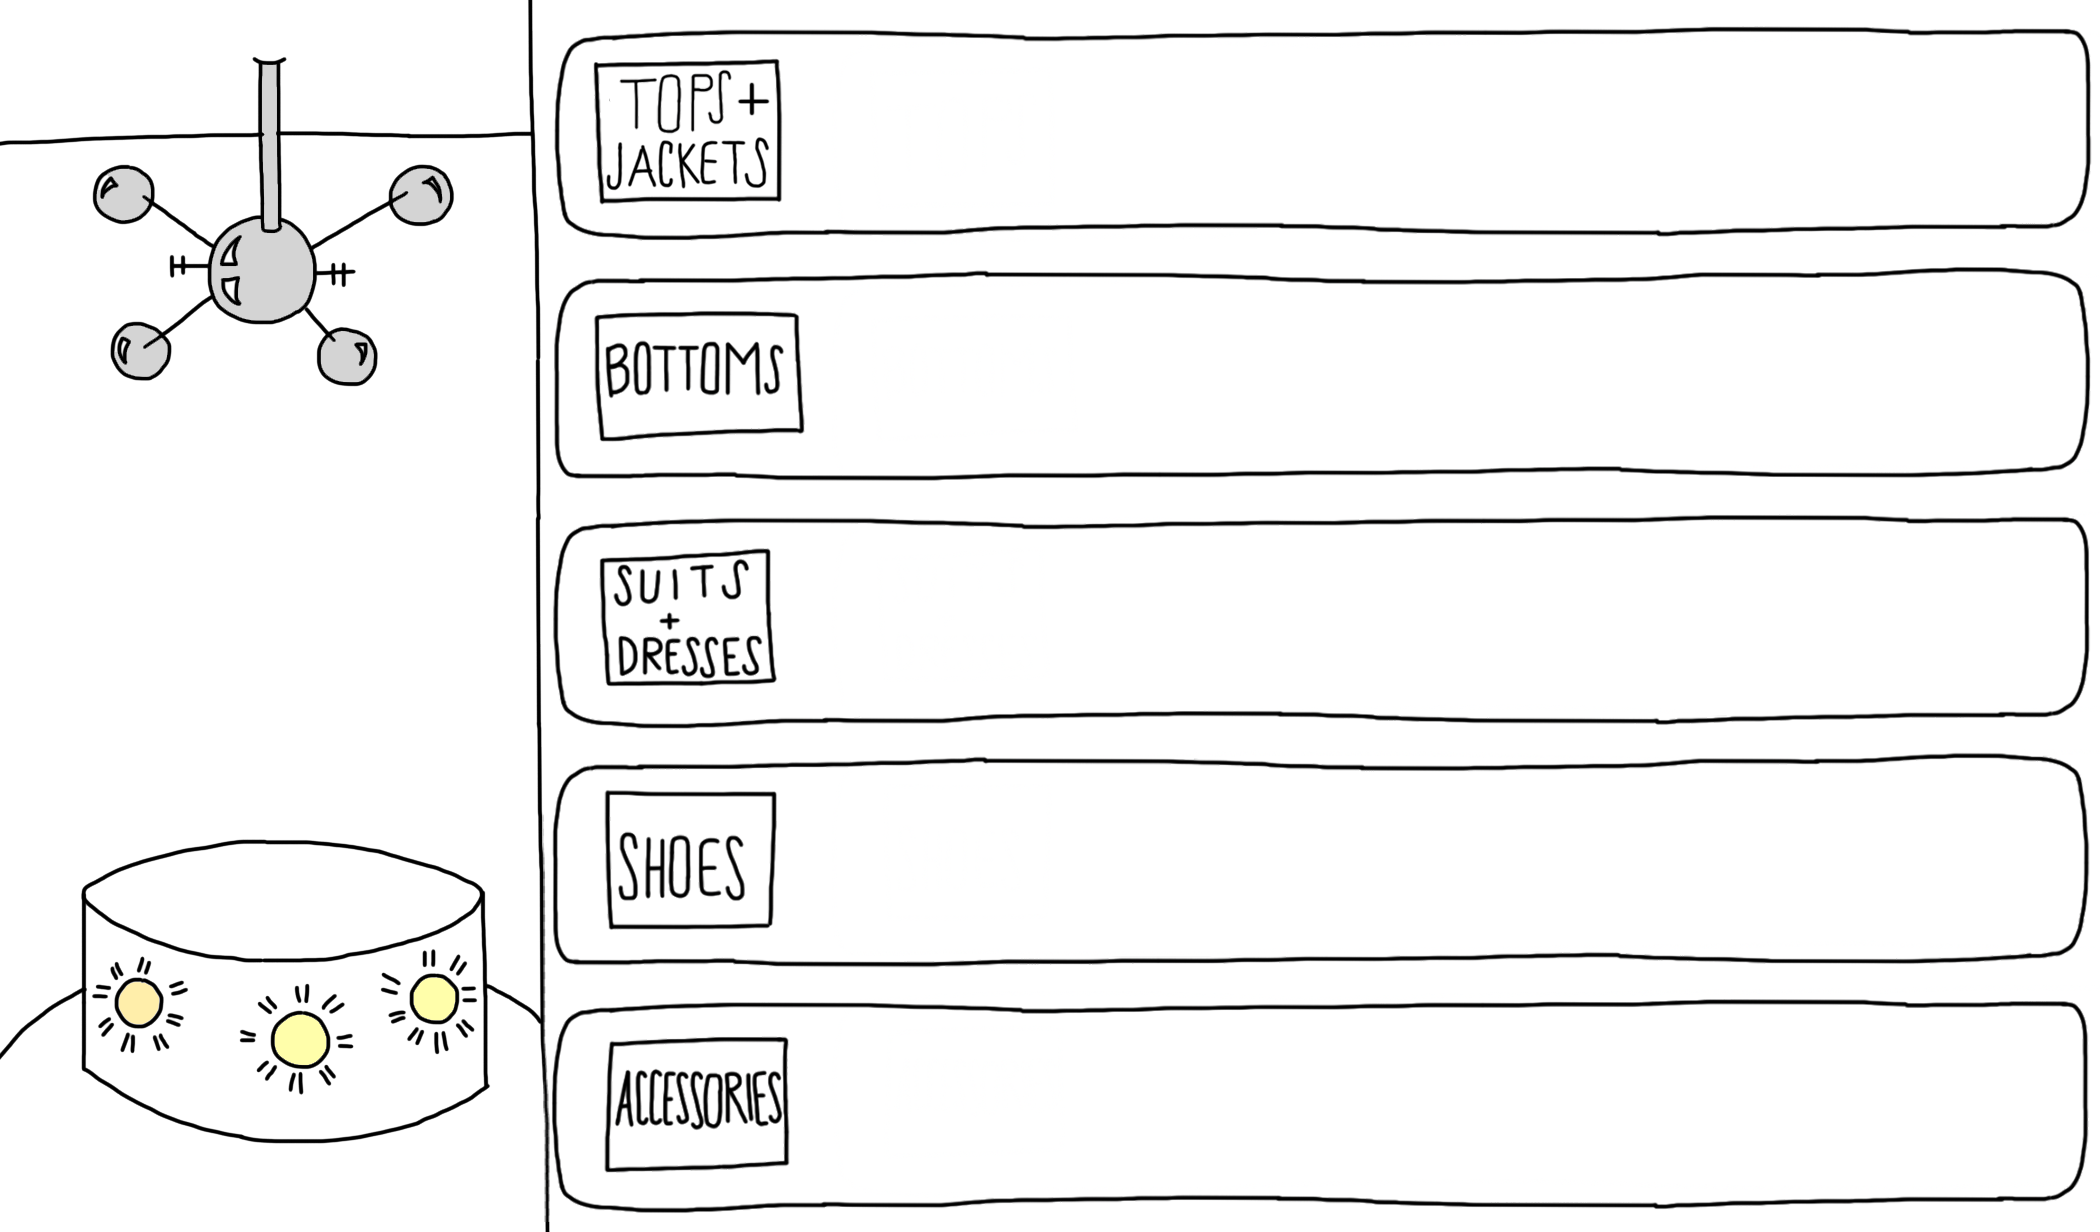 TOPS+
JACKETS
BOTTOMS
SUITS
+
DRESSES
SHOES
ACCESSORIES